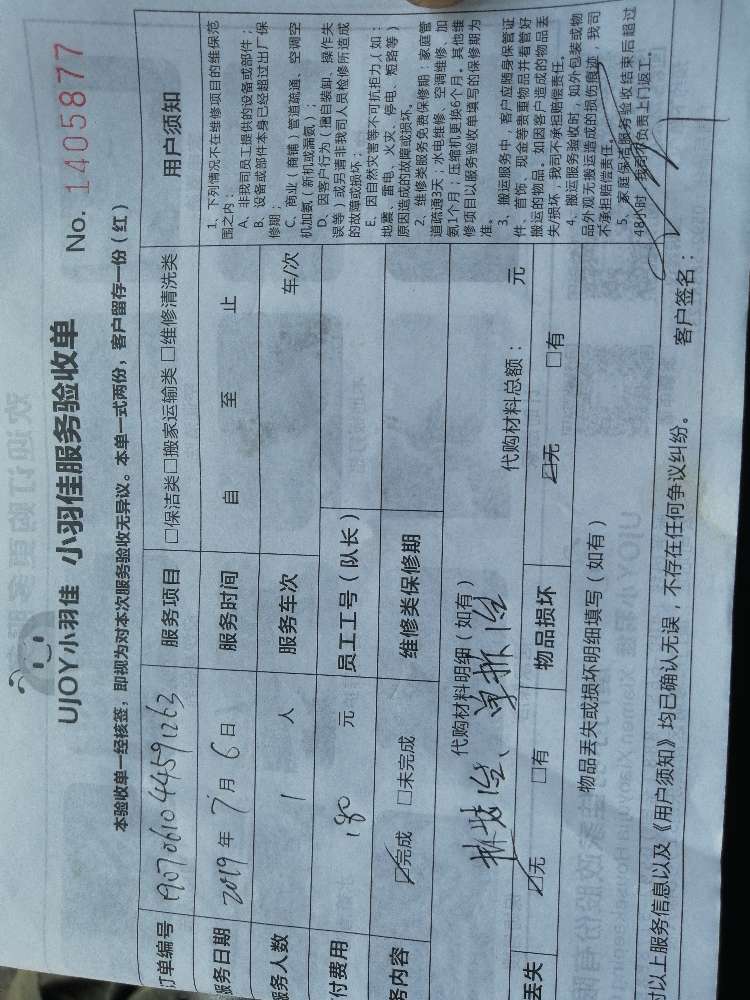 UJOY小羽佳 小羽佳服务验收单 No. 1405877
本验收单一经核签，即视为对本次服务验收无异议。本单一式两份，客户留存一份（红）
订单编号 1907061044591263 服务项目 □保洁类□搬家运输类 □维修清洗类
服务日期 2019 年 7 月 6 日 服务时间 自 至 止
服务人数 1 人 服务车次 车/次
付费用 180 元 员工工号（队长）
务内容 ☑完成 □未完成 维修类保修期
代购材料明细（如有） 代购材料总额： 元
丢失 ☑无 □有 物品损坏 ☑无 □有
物品丢失或损坏明细填写（如有）
以上服务信息以及《用户须知》均已确认无误，不存在任何争议纠纷。 客户签名：
用户须知
1、下列情况不在维修项目的维保范
围之内：
A、非我司员工提供的设备或部件；
B、设备或部件本身已经超过出厂保
修期；
C、商业（商铺）管道疏通、空调空
机加氨（新机或漏氨）；
D、因客户行为（擅自装卸、操作失
误等）或另请非我司人员检修所造成
的故障或损坏；
E、因自然灾害等不可抗拒力（如：
地震、雷电、火灾、停电、短路等）
原因造成的故障或损坏。
2、维修类服务免费保修期：家庭管
道疏通3天；水电维修、空调维修、加
氨1个月；压缩机更换6个月，其他维
修项目以服务验收单填写的保修期为
准。
3、搬运服务中，客户应随身保管证
件、首饰、现金等贵重物品并看管好
搬运的物品。如因客户造成的物品丢
失/损坏，我司不承担赔偿责任。
4、搬运服务验收时，如外包装或物
品外观无搬运造成的损伤痕迹，我司
不承担赔偿责任。
5、家庭保洁服务验收结束后超过
48小时，我司不负责上门返工。